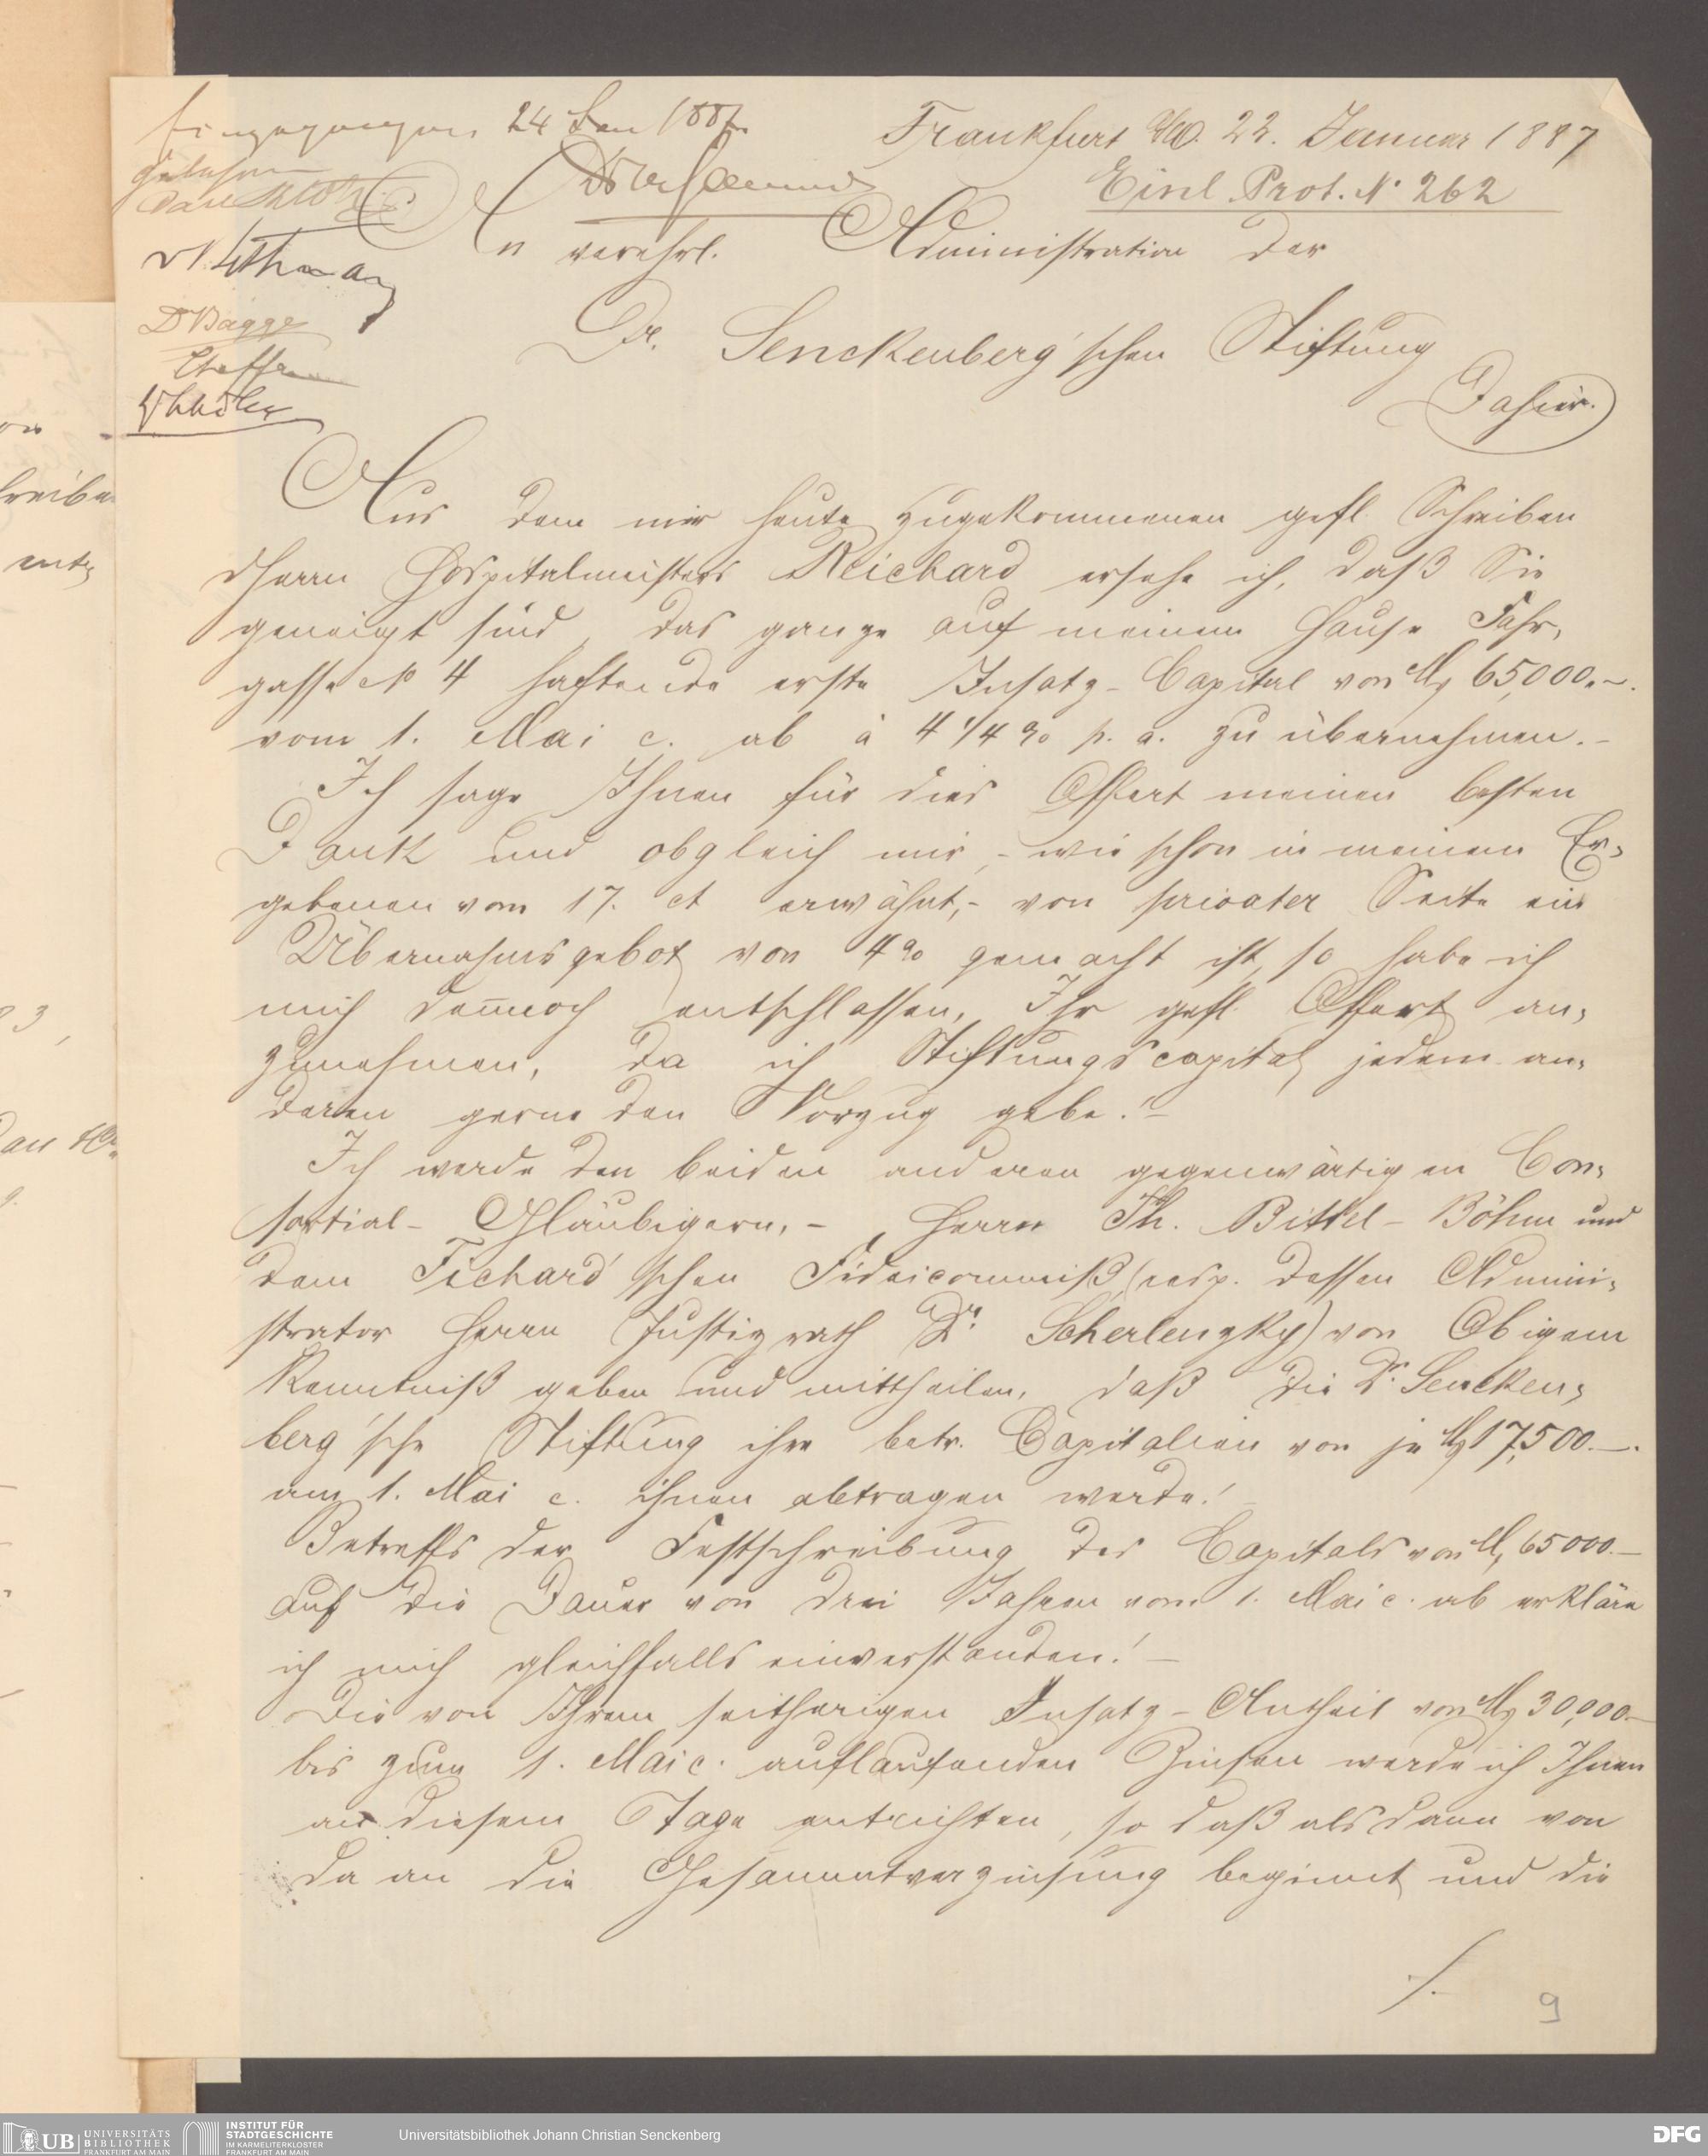 Eingegangen 24 Jan 1887.
Frankfurt a/M. 22. Januar 1887
gelesen
Einl. Prot. No 262
An verehrl. Administration der
Dr Bagge
Dr. Senckenberg'schen Stiftung
Dahier.
Aus dem mir heute zugekommenen gefl. Schreiben
d Herrn Hospitalmeisters Reichard ersehe ich, daß Sie
geneigt sind, das ganze auf meinem Hause Fahr-
gasse No 4 haftende erste Insatz-Capital von M 65,000.-.
vom 1. Mai c. ab à 4 1/4 % p. a. zu übernehmen.-
Ich sage Ihnen für dies Offert meinen besten
Dank und obgleich mir,- wie schon in meinem Er-
gebenen vom 17. ct erwähnt,- von privater Seite ein
Übernahmsgebot von 4% gemacht ist, so habe ich
mich dennoch entschlossen, Ihr gefl. Offert an-
zunehmen, da ich Stiftungscapital jedem an-
deren gerne den Vorzug gebe.!-
Ich werde den beiden anderen gegenwärtigen Con-
sortial-Gläubigern,- Herrn Th. Bittel-Böhm und
dem Fichard'schen Fideicommiß (resp. dessen Admini-
strator Herrn Justizrath Dr. Scherlenzky) von Obigem
Kenntniß geben und mittheilen, daß die Dr. Sencken-
berg'sche Stiftung ihre betr. Capitalien von je M 17,500.-.
am 1. Mai c. ihnen abtragen werde!-
Betreffs der Festschreibung des Capitals von M 65000.-
auf die Dauer von drei Jahren vom 1. Mai c. ab erkläre
ich mich gleichfalls einverstanden!-
Die von Ihrem seitherigen Insatz-Antheil von M 30,000.-
bis zum 1. Mai c. auflaufenden Zinsen werde ich Ihnen
an diesem Tage entrichten, so daß alsdann von
da an die Gesammtverzinsung beginnt und die
./.
9
UB UNIVERSITÄTS
BIBLIOTHEK
FRANKFURT AM MAIN
INSTITUT FÜR
STADTGESCHICHTE
IM KARMELITERKLOSTER
FRANKFURT AM MAIN
Universitätsbibliothek Johann Christian Senckenberg
DFG